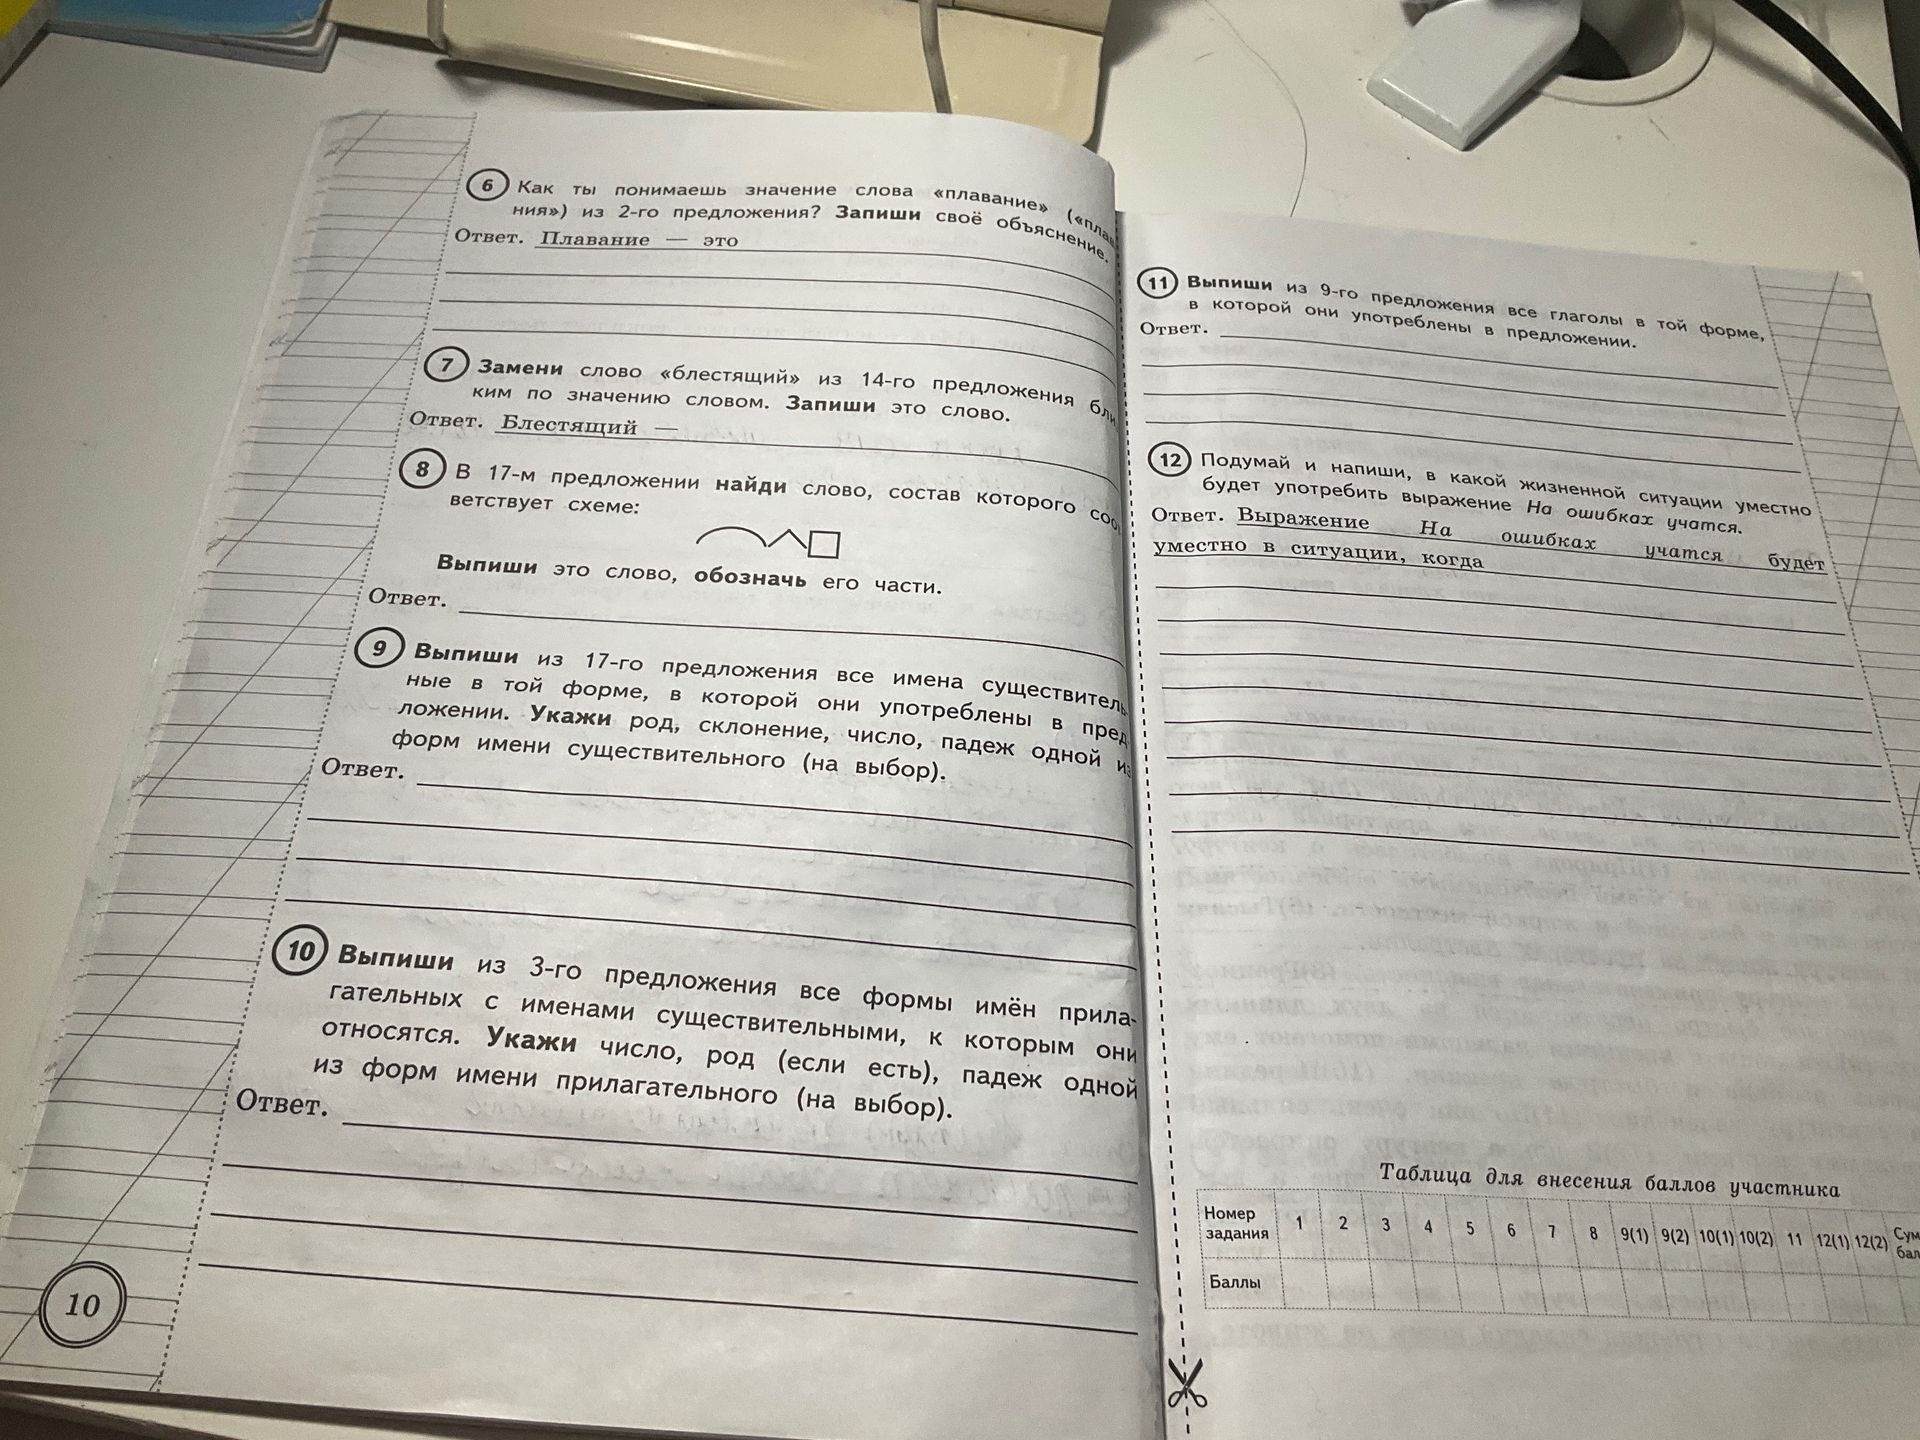 6 Как ты понимаешь значение слова «плавание» («плава
ния») из 2-го предложения? Запиши своё объяснение.
Ответ. Плавание — это
7 Замени слово «блестящий» из 14-го предложения бли
ким по значению словом. Запиши это слово.
Ответ. Блестящий —
8 В 17-м предложении найди слово, состав которого соо
ветствует схеме:
Выпиши это слово, обозначь его части.
Ответ.
9 Выпиши из 17-го предложения все имена существитель-
ные в той форме, в которой они употреблены в пред-
ложении. Укажи род, склонение, число, падеж одной из
форм имени существительного (на выбор).
Ответ.
10 Выпиши из 3-го предложения все формы имён прила-
гательных с именами существительными, к которым они
относятся. Укажи число, род (если есть), падеж одной
из форм имени прилагательного (на выбор).
Ответ.
10
11 Выпиши из 9-го предложения все глаголы в той форме,
в которой они употреблены в предложении.
Ответ.
12 Подумай и напиши, в какой жизненной ситуации уместно
будет употребить выражение На ошибках учатся.
Ответ. Выражение На ошибках учатся будет
уместно в ситуации, когда
Таблица для внесения баллов участника
Номер задания 1 2 3 4 5 6 7 8 9(1) 9(2) 10(1) 10(2) 11 12(1) 12(2) Сум бал
Баллы